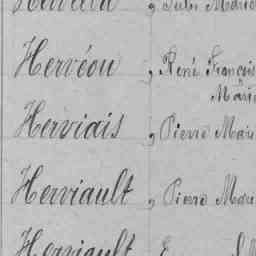 Hervéou, René François
Mari
Herviais, Pierre Mari
Herviault, Pierre Mari
Herviault